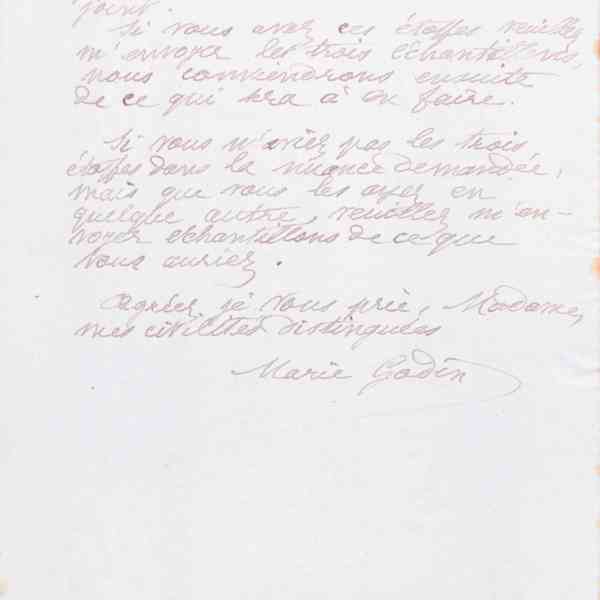 joint.
Si vous avez ces étoffes veuillez
m'envoyer les trois échantillons,
nous conviendrons ensuite
de ce qui sera à en faire.
Si vous n'aviez pas les trois
étoffes dans la nuance demandée,
mais que vous les ayez en
quelque autre, veuillez m'en-
voyer échantillons de ce que
vous auriez.
Agréez, je vous prie, Madame,
mes civilités distinguées
Marie Godin